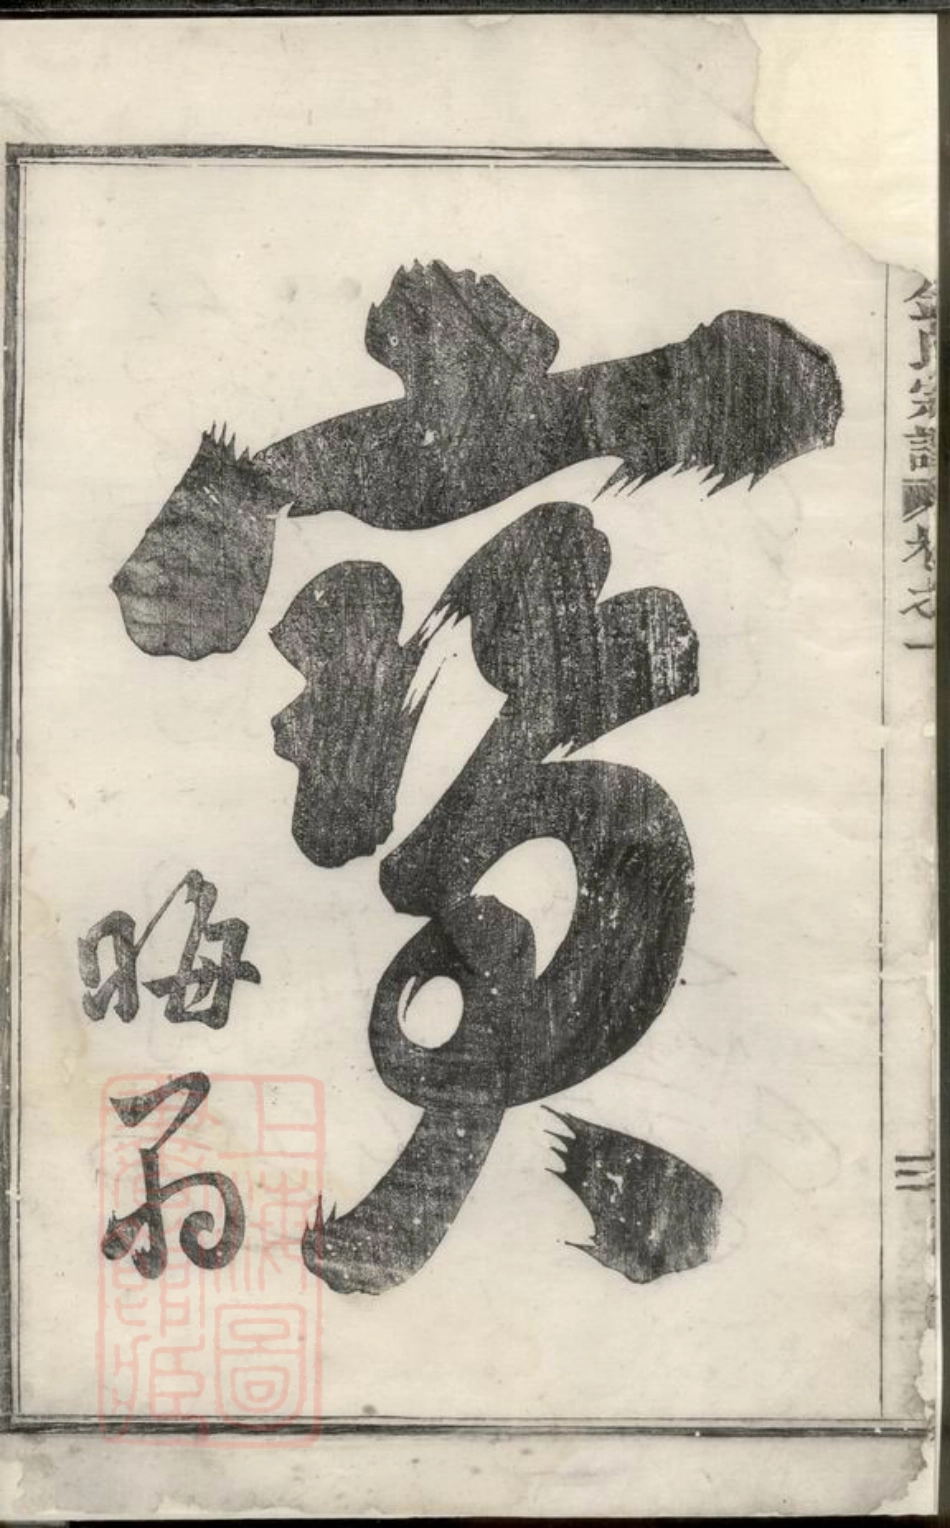 氏宗譜 卷之一
三
寶
晦翁
上海圖
書館藏